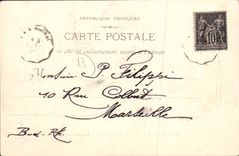 RÉPUBLIQUE FRANÇAISE
CARTE POSTALE
Ce côté est exclusivement réservé à l'adresse
B
Monsieur P. Filippi
10 Rue Colbert
Marseille
B-d-R
10